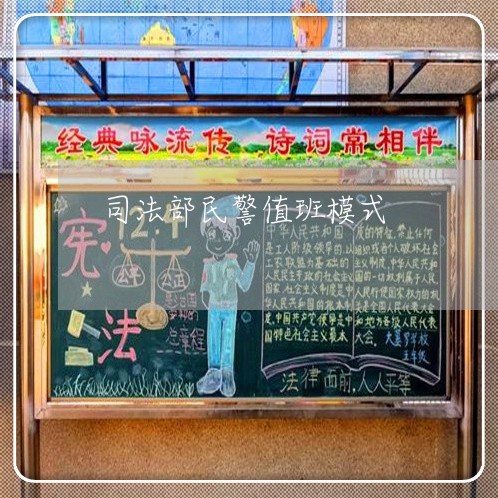 经典咏流传 诗词常相伴
司法部民警值班模式
宪
法
12.4
公平 公正
总章程
中华人民共和国
是工人阶级领导的,以
工农联盟为基础的
人民民主专政的社会主义
国家。社会主义制度是中
华人民共和国的根本制
度。中国共产党领导是中
国特色社会主义最本
质的特征。禁止任何
组织或者个人破坏社会
主义制度。中华人民共和
国的一切权利属于人民。
人民行使国家权力的机
关是全国人民代表大会
和地方各级人民代表
大会。
学校
五年级
法律面前,人人平等